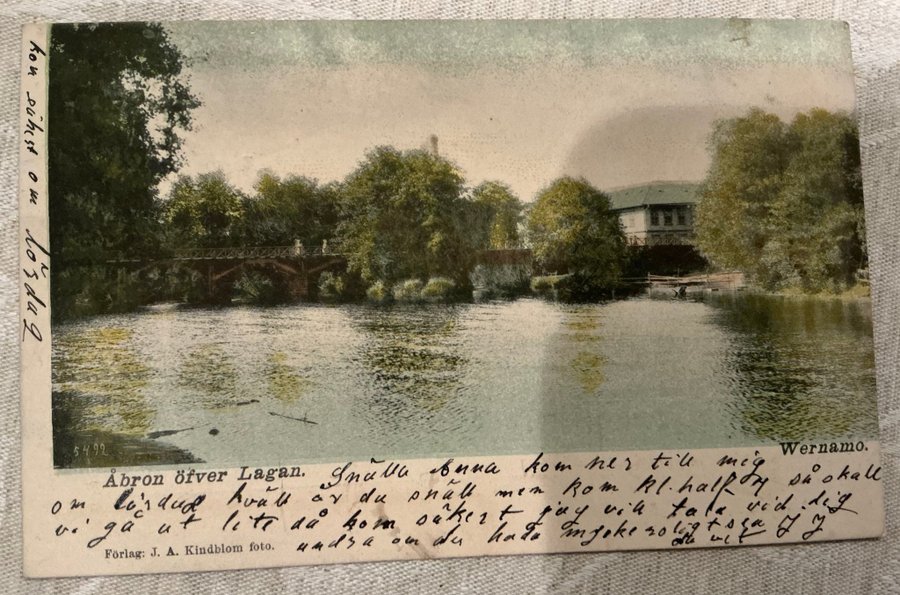 kom säkert om lördag
5492
Åbron öfver Lagan.
Wernamo.
Snälla Anna kom ner till mig
om lördag kväll är du snäll men kom kl. half 7 så skall
vi gå ut lite då kom säkert jag vill tala vid dig
undra om du hade mycke roligt
du vet J J
Förlag: J. A. Kindblom foto.